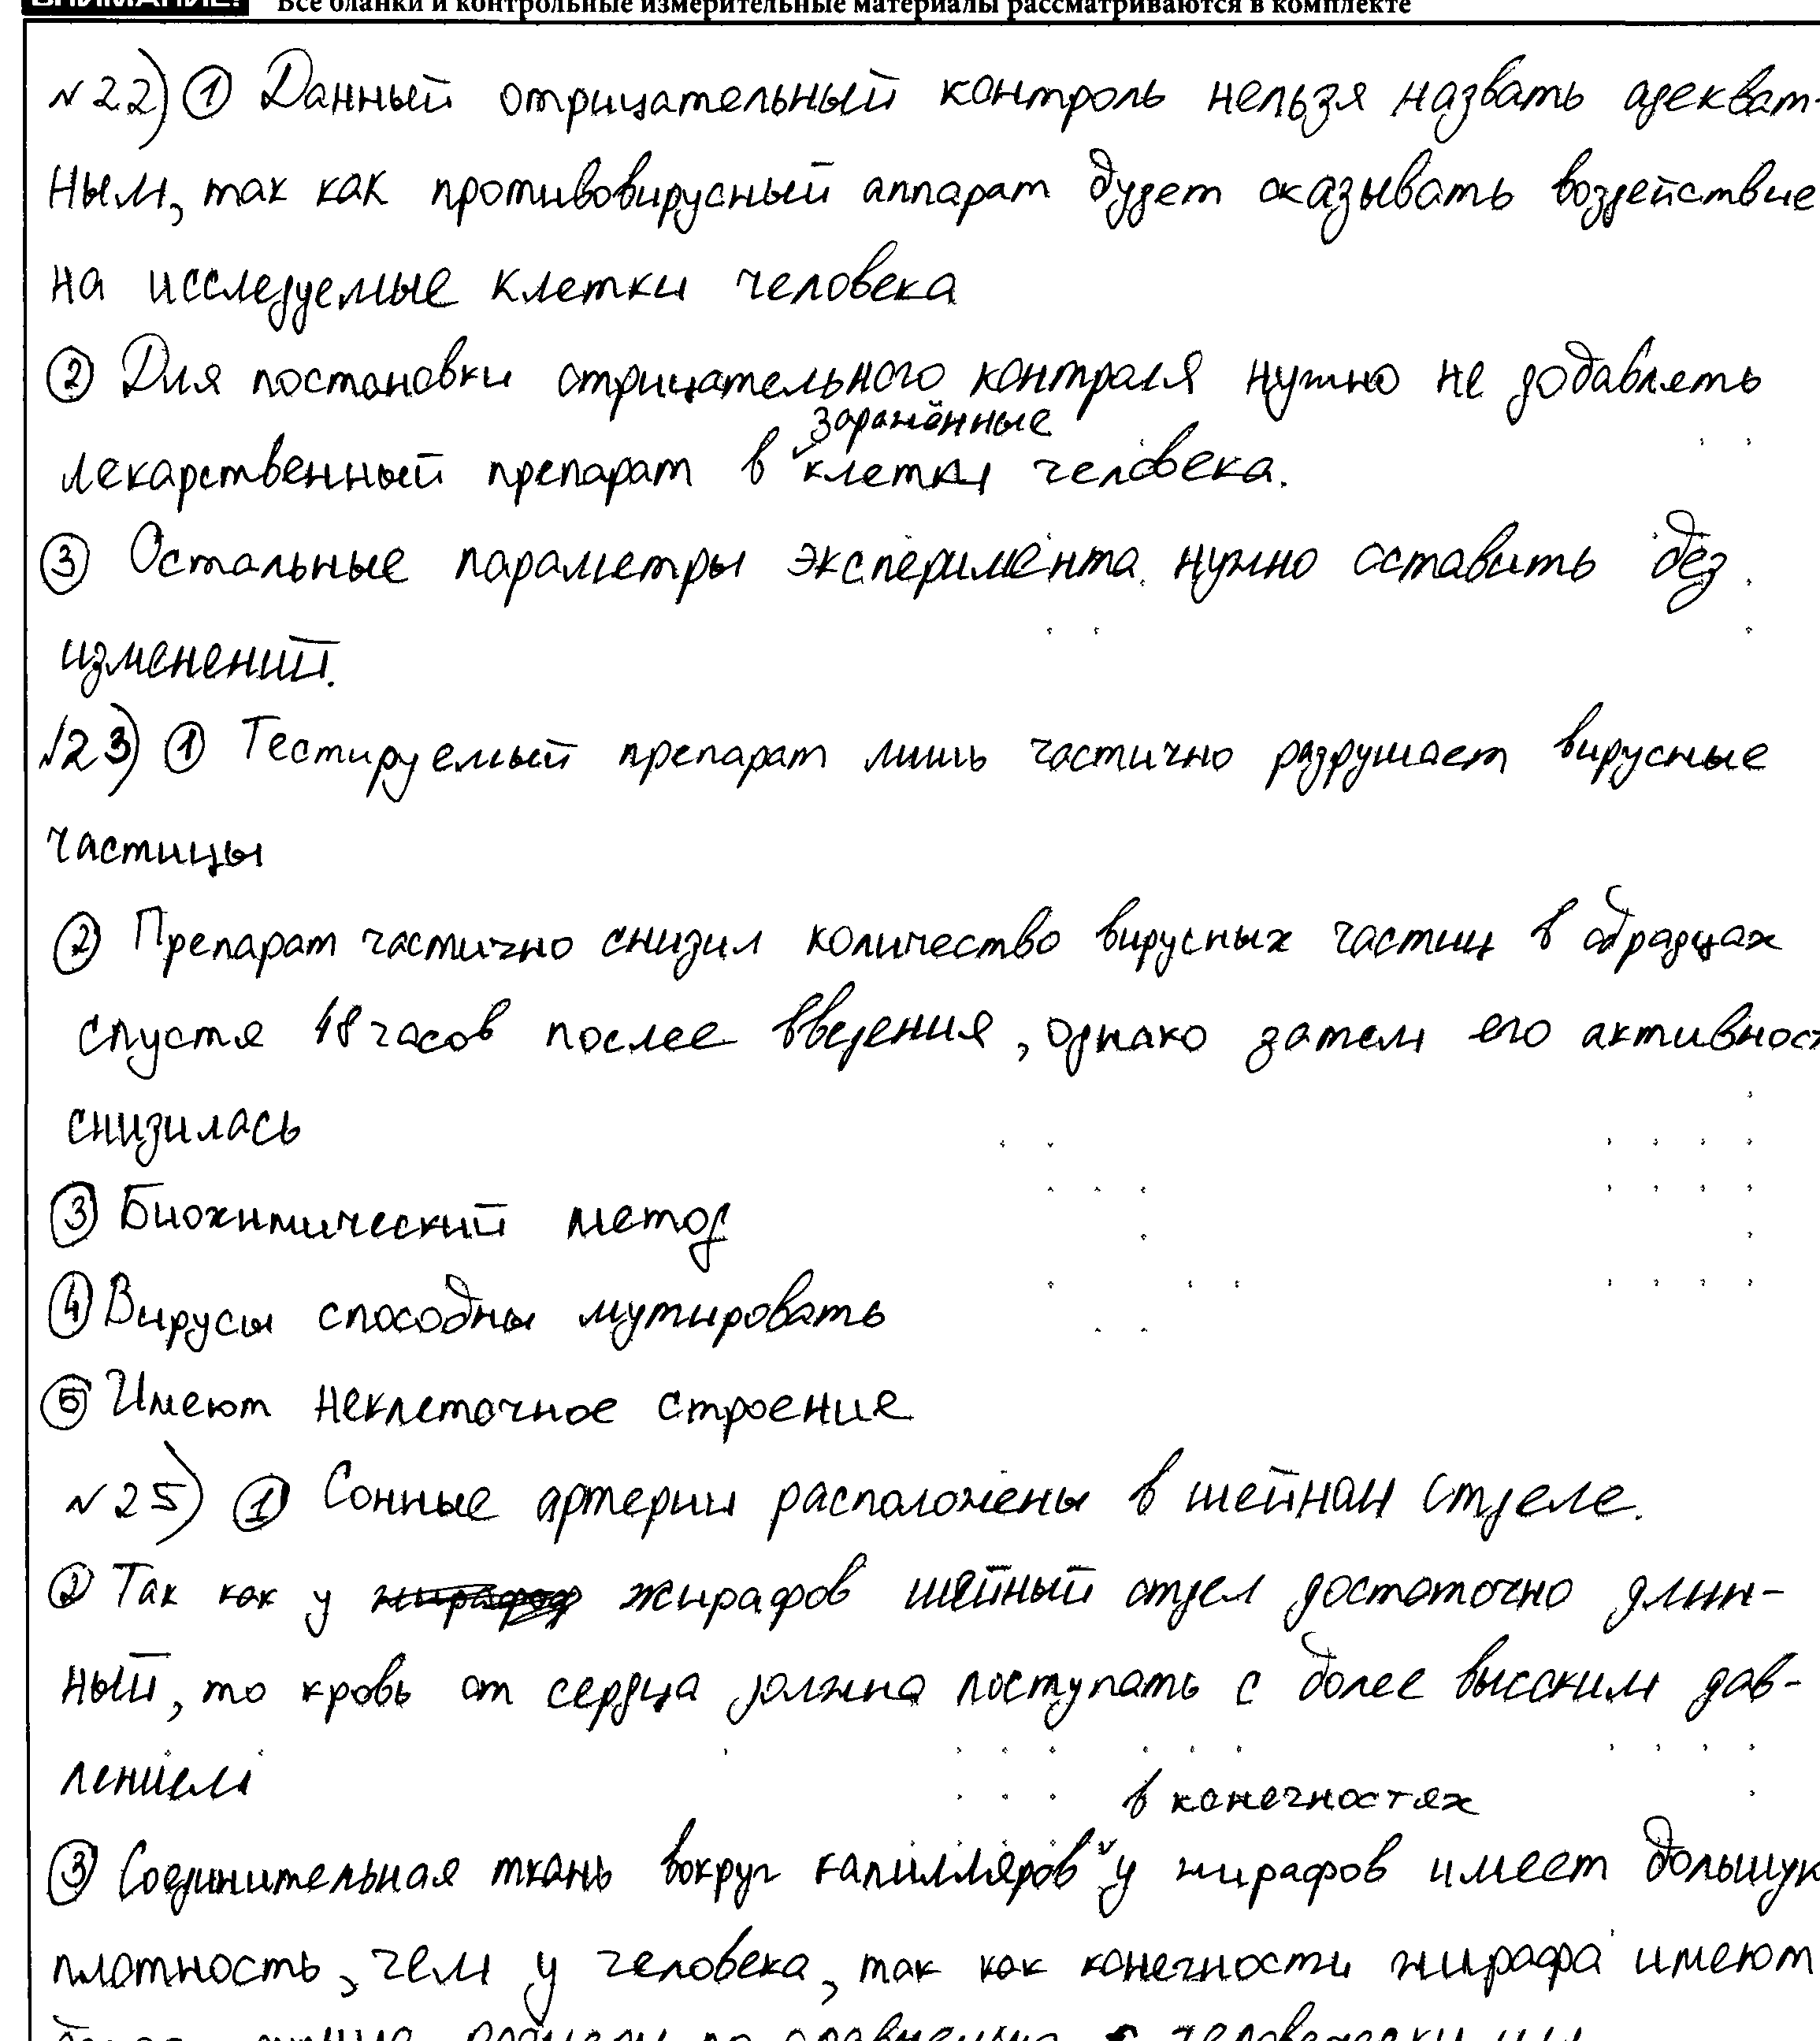 ВНИМАНИЕ! Все бланки и контрольные измерительные материалы рассматриваются в комплекте
№22) ① Данный отрицательный контроль нельзя назвать адекват-
ным, так как противовирусный аппарат будет оказывать воздействие
на исследуемые клетки человека
② Для постановки отрицательного контроля нужно не добавлять
заражённые
лекарственный препарат в клетки человека.
③ Остальные параметры эксперимента нужно оставить без
изменений.
№23) ① Тестируемый препарат лишь частично разрушает вирусные
частицы
② Препарат частично снизил количество вирусных частиц в образцах
спустя 48 часов после введения, однако затем его активност
снизилась
③ Биохимический метод
④ Вирусы способны мутировать
⑤ Имеют неклеточное строение
№25) ① Сонные артерии расположены в шейном отделе.
② Так как у жирафов шейный отдел достаточно длин-
ный, то кровь от сердца должна поступать с более высоким дав-
лением
в конечностях
③ Соединительная ткань вокруг капилляров у жирафов имеет большую
плотность, чем у человека, так как конечности жирафа имеют